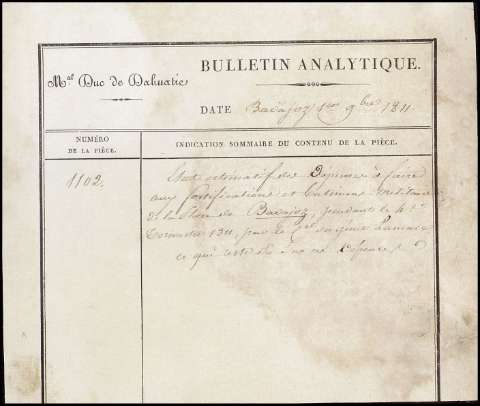 Mal Duc de Dalmatie
BULLETIN ANALYTIQUE.
DATE Badajoz 1er 9bre 1811
NUMÉRO
DE LA PIÈCE.
INDICATION SOMMAIRE DU CONTENU DE LA PIÈCE.
1102.
Etat estimatif des Dépenses à faire
aux fortifications et Batimens militaires
de la Place de Badajoz, pendant le 4e
Trimestre 1811, par le du génie
ce qui reste de